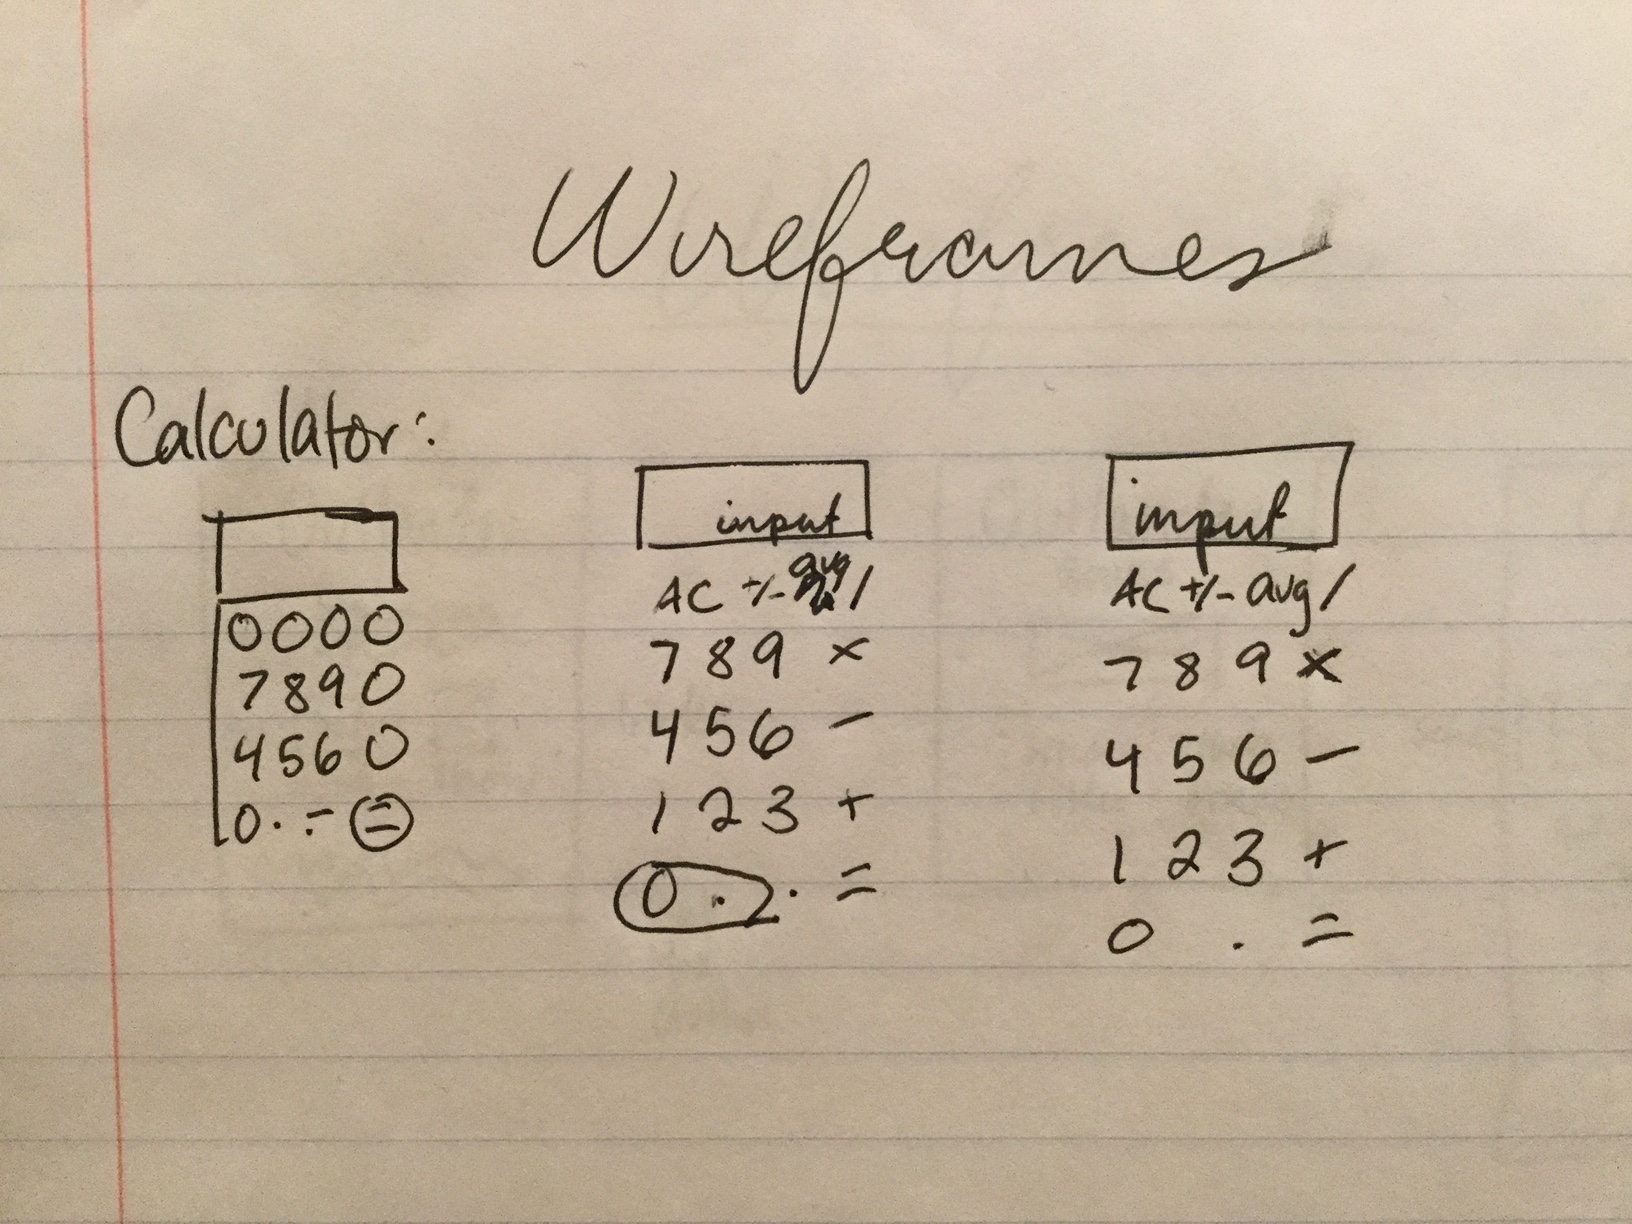 Wireframes
Calculator:
0000
7890
4560
0 . ÷ =
input
AC +/- avg /
7 8 9 ×
4 5 6 −
1 2 3 +
0 . . =
input
AC +/- avg /
7 8 9 ×
4 5 6 −
1 2 3 +
0 . =